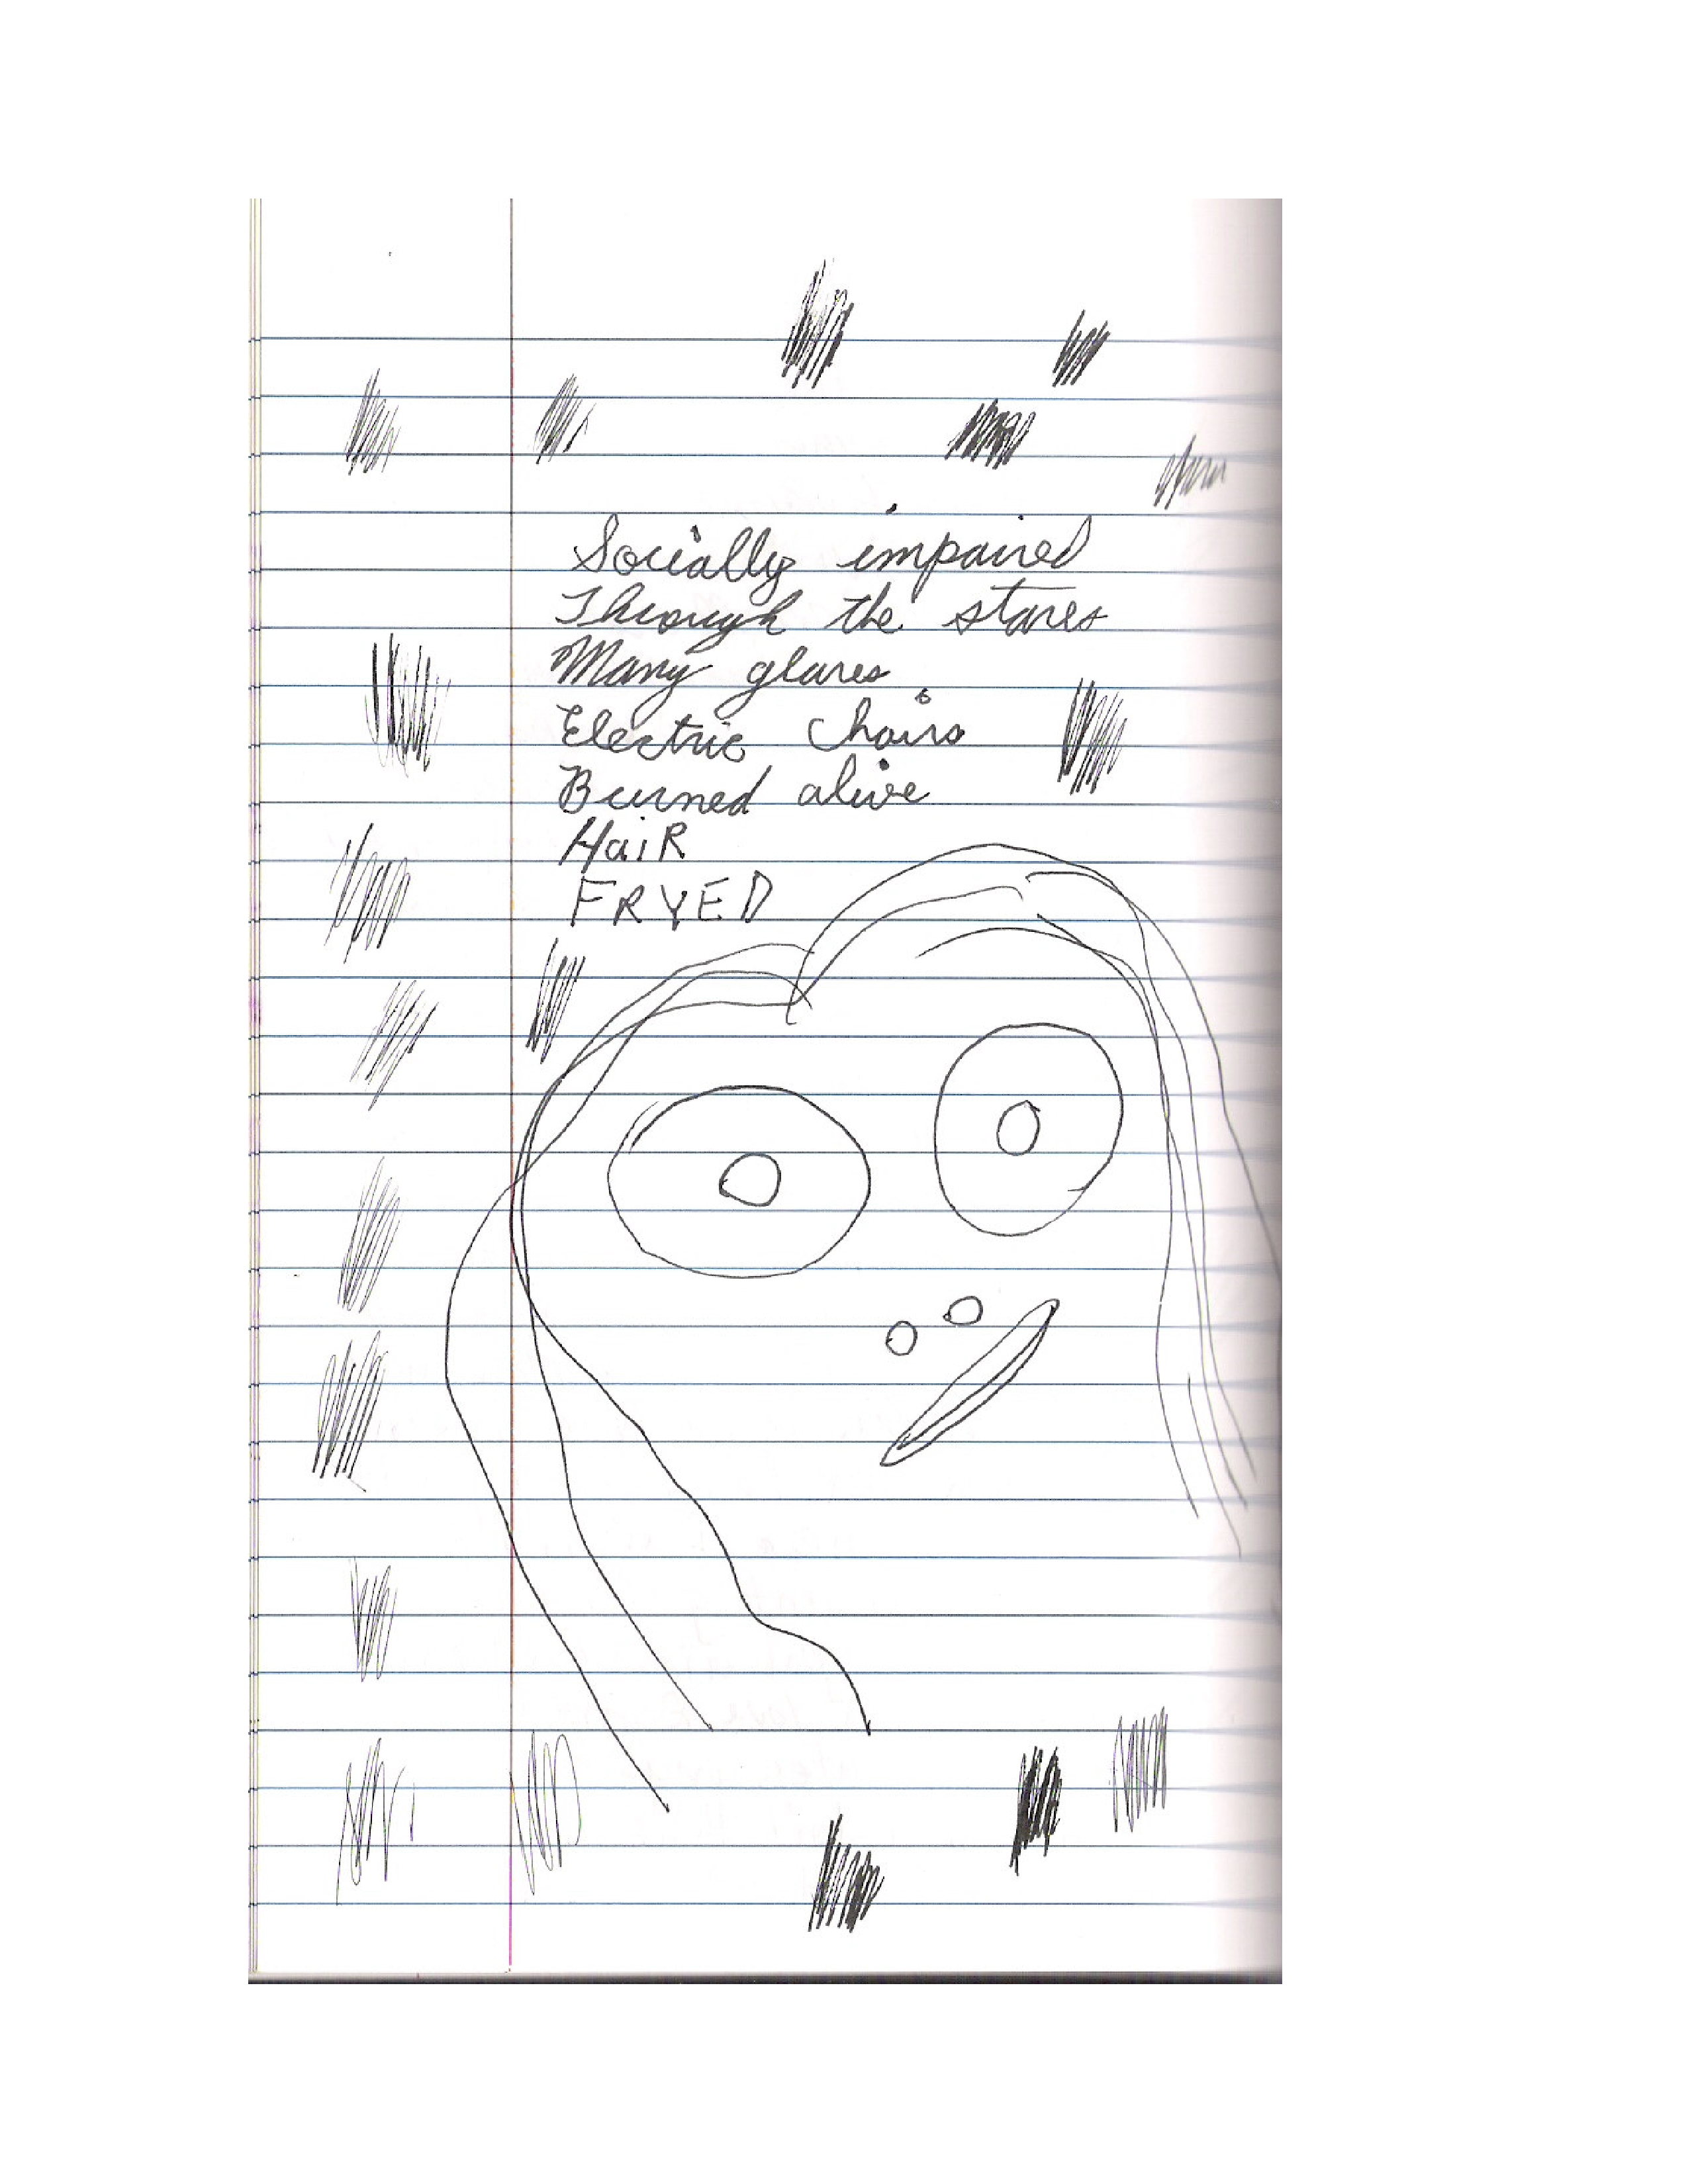 Socially impaired
Through the stares
Many glares
Electric Chairs
Burned alive
HaiR
FRYED